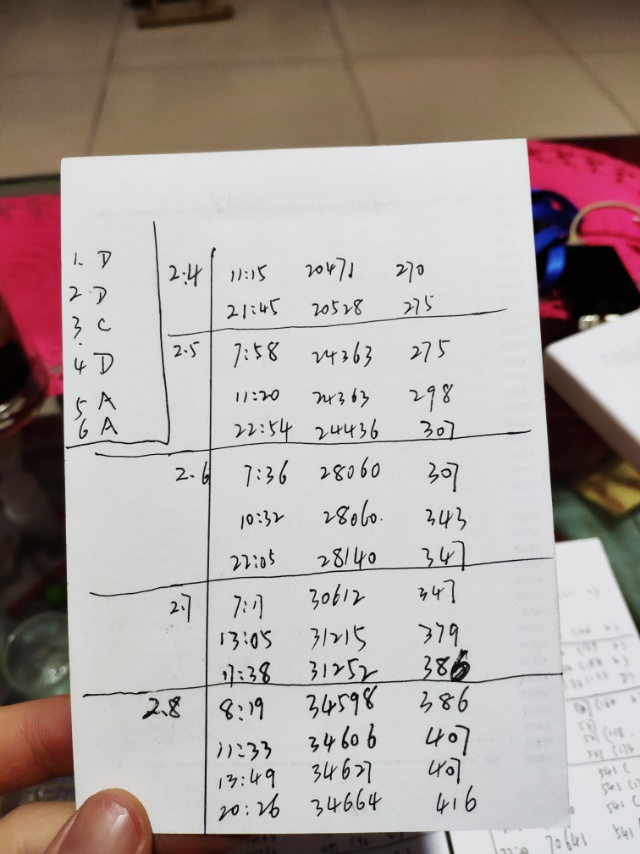 1. D
2. D
3. C
4 D
5 A
6 A
2.4 11:15 20471 270
21:45 20528 275
2.5 7:58 24363 275
11:20 24363 298
22:54 24436 307
2.6 7:36 28060 307
10:32 28060. 343
22:05 28140 347
2.7 7:17 30612 347
13:05 31215 379
17:38 31252 386
2.8 8:19 34598 386
11:33 34606 407
13:49 34627 407
20:26 34664 416
70641
541 C